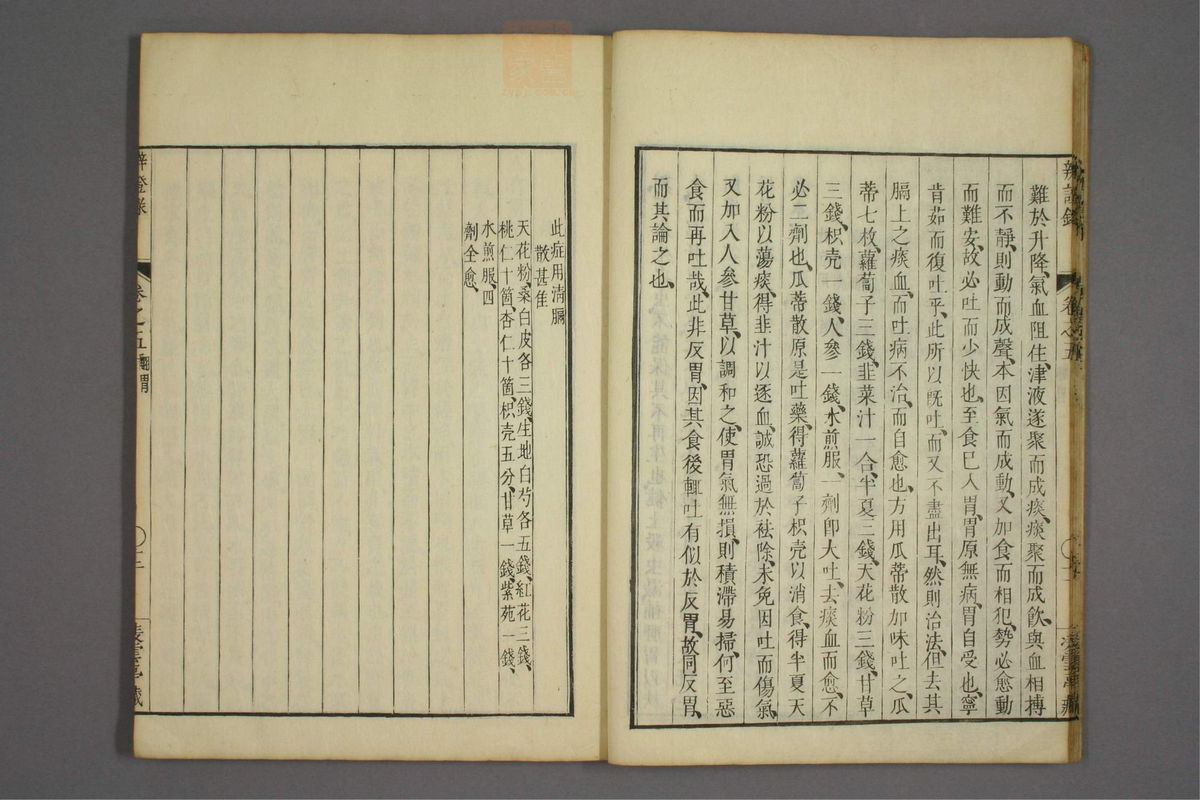 難於升降、氣血阻住、津液遂聚而成痰、痰聚而成飲、與血相摶
而不靜、則動而成聲、本因氣而成動、又加食而相犯、勢必愈動
而難安、故必吐而少快也、至食已入胃、胃原無病、胃自受也、寧
肯茹而復吐乎、此所以旣吐、而又不盡出耳、然則治法、但去其
膈上之痰血、而吐病不治、而自愈也、方用瓜蒂散加味吐之、瓜
蒂七枚、蘿蔔子三錢、韭菜汁一合、半夏三錢、天花粉三錢、甘草
三錢、枳壳一錢、人參一錢、水煎服、一劑卽大吐、去痰血而愈、不
必二劑也、瓜蒂散原是吐藥、得蘿蔔子枳壳以消食、得半夏天
花粉以蕩痰、得韭汁以逐血、誠恐過於祛除、未免因吐而傷氣、
又加入人參甘草、以調和之、使胃氣無損、則積滯易掃、何至惡
食而再吐哉、此非反胃、因其食後輒吐、有似於反胃、故同反胃、
而其論之也、
此症用淸膈
散甚隹
天花粉、桑白皮各三錢、生地白芍各五錢、紅花三錢、
桃仁十箇、杏仁十箇、枳壳五分、甘草一錢、紫苑一錢、
水煎服、四
劑全愈、
卷之五 翻胃